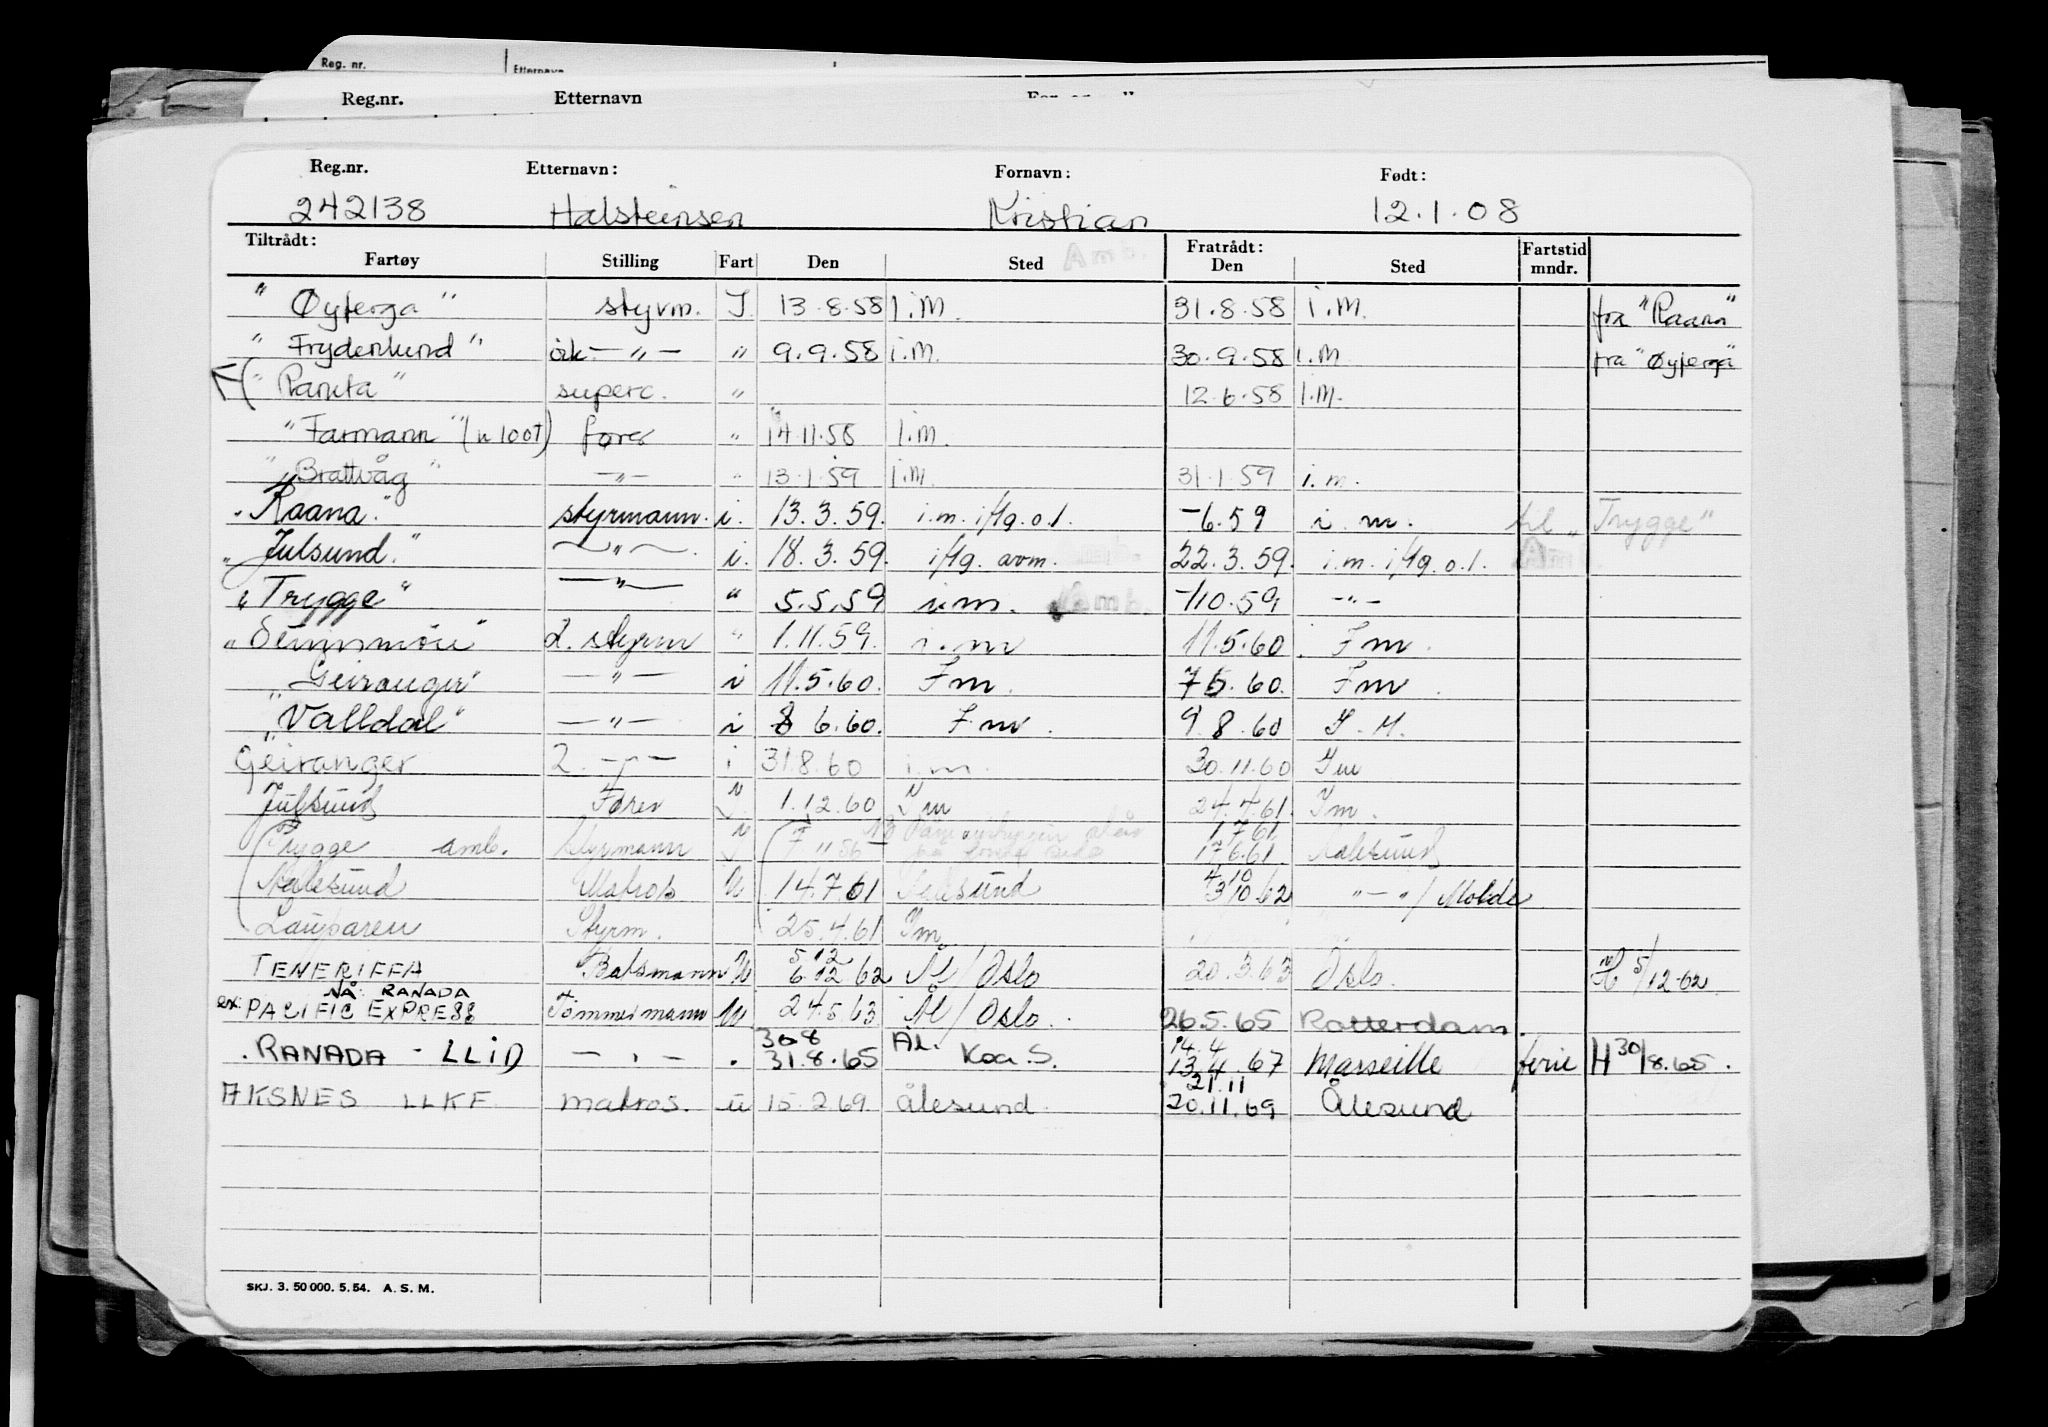 Reg. nr. Etternavn
Reg.nr. Etternavn
Reg.nr. Etternavn: Fornavn: Født:
242138 Halsteinsen Kristian 12.1.08
Tiltrådt: Fratrådt: Fartstid
Fartøy Stilling Fart Den Sted Amb. Den Sted mndr.
"Øyterga" styrm. I 13.8.58 i.M. 31.8.58 i.M. fra "Raana"
"Frydenlund" — " — " 9.9.58 i.M. 30.9.58 i.M. fra "Øyterga"
"Ranta" superc. " 12.6.58 i.M.
"Farmann" (u 100T) fører " 14.11.58 i.M.
"Brattvåg" — " — " 13.1.59 i.M. 31.1.59 i.m.
"Raana" styrmann. i. 13.3.59. i.m. iflg. o.l. -6.59 i.m. til "Trygge"
"Julsund." — " — i. 18.3.59. iflg. avm. 22.3.59. i.m. iflg. o.l.
"Trygge" — " — " 5.5.59 i.m. -10.59 — " —
"Sunnmøre" 2. styrm " 1.11.59. i.m 11.5.60 Im.
"Geiranger" — " — i 11.5.60. Im. 60. Im.
"Valldal" — " — i 8 6.60. Im. 9.8.60 I.M.
Geiranger 2. — " — i 31.8.60 i.m. 30.11.60 Im
Julsund Fører I 1.12.60 Im 24.4.61. Im.
Trygge amb. Styrmann I 1.7.61 Aalesund
Aalesund Matros U 14.7.61 Aalesund 4/10 3/10.62 " — " / Molde
Lauparen Styrm. 25.4.61 Im
TENERIFFA Båtsmann U 5.12 6.12 62 Ål/Oslo 20.3.63 Oslo. H 5/12-62
NÅ: RANADA
ex: PACIFIC EXPRESS Tømmermann U 24.5.63 Ål/Oslo. 26.5.65 Rotterdam.
RANADA - LLID — " — . 30 8 31.8.65 Ål. Koa.S. 14.4 13.4.67 Marseille ferie H 30/8.65.
AKSNES LLKF matros. u 15.2.69. Ålesund. 21.11 20.11.69 Ålesund
SKJ. 3. 50 000. 5. 54. A. S. M.